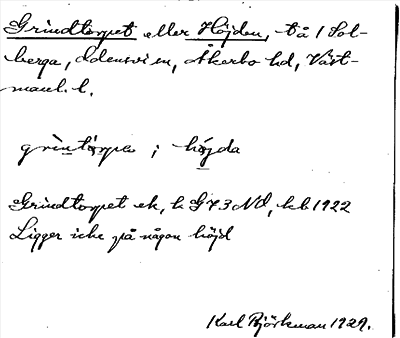 Grindtorpet eller Höjden, t å 1 Sol-
berga, Odensvi sn, Åkerbo hd, Väst-
manl. l.
grìntòrpa ; höjda
Grindtorpet ek, h G 73 NO, kb 1922
Ligger icke på någon höjd
Karl Björkman 1929.